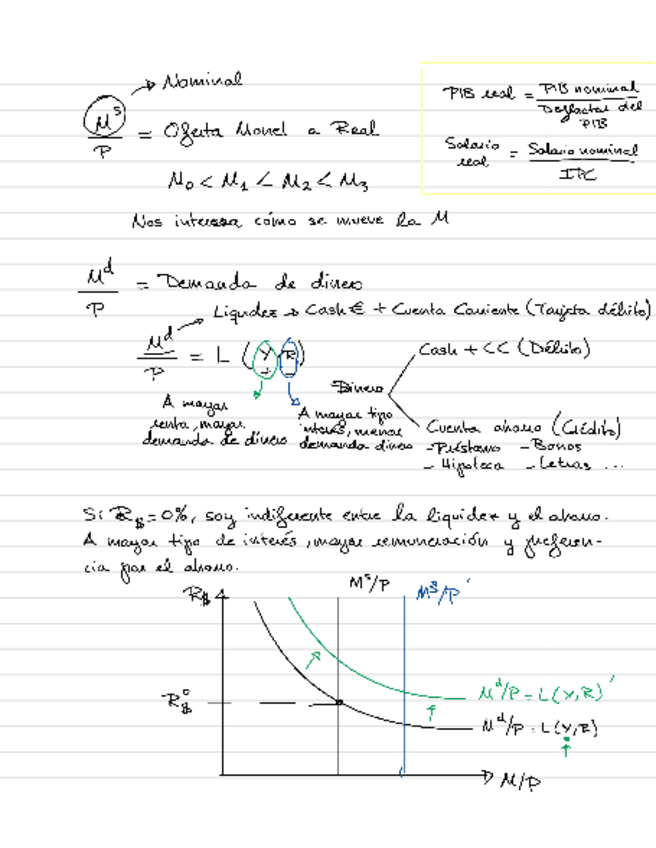 → Nominal
M^s/P = Oferta Monet a Real
PIB real = PIB nominal / Deflactor del PIB
Salario real = Salario nominal / IPC
M₀ < M₁ < M₂ < M₃
Nos interesa cómo se mueve la M
M^d/P = Demanda de dinero
Liquidez → Cash € + Cuenta Corriente (Tarjeta débito)
M^d/P = L (Y, R)
+ -
A mayor
renta, mayor
demanda de dinero
A mayor tipo
interés, menor
demanda dinero
Dinero
Cash + CC (Débito)
Cuenta ahorro (Crédito)
- Préstamo - Bonos
- Hipoteca - Letras ...
Si R$ = 0%, soy indiferente entre la liquidez y el ahorro.
A mayor tipo de interés, mayor remuneración y preferen-
cia por el ahorro.
R$
M^s/P
M^s/P'
R$⁰
M^d/P = L(Y,R)'
M^d/P = L(Y,R)
M/P